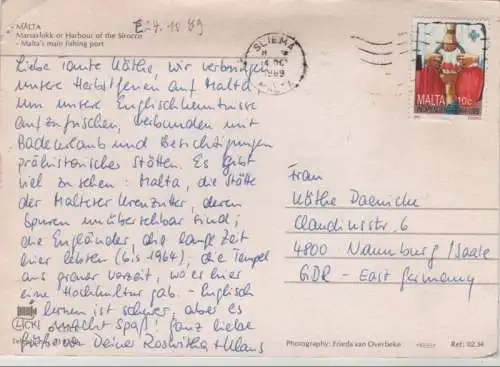 MALTA
Marsaxlokk or Harbour of the Sirocco
- Malta's main fishing port
E 24.10.89
SLIEMA
1989
MALTA
MALTA 10c
Liebe Tante Käthe, wir verbringen
unsere Herbstferien auf Malta
um unsere Englischkenntnisse
aufzufrischen, verbunden mit
Badeurlaub und Besichtigungen
prähistorischer Stätten. Es gibt
viel zu sehen: Malta, die Stätte
der Malteser Kreuzritter, deren
Spuren unübersehbar sind;
die Engländer, die lange Zeit
hier lebten (bis 1964), die Tempel
aus grauer Vorzeit, wo es hier
eine Hochkultur gab. - Englisch
lernen ist schwer, aber es
macht Spaß! Ganz liebe
Grüße von Deiner Roswitha + Klaus
Frau
Käthe Daenicke
Claudiusstr. 6
4800 Naumburg/Saale
GDR - East Germany
Photography: Frieda van Overbeke
Ref: 02.34